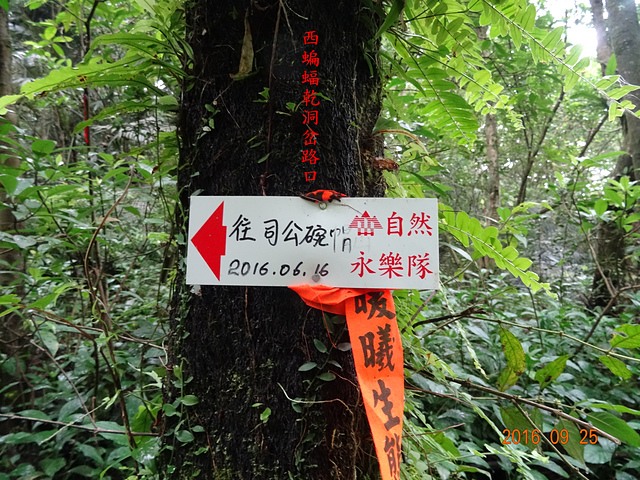 西蝙蝠乾洞岔路口
往司公碗
自然
2016.06.16
永樂隊
暖曦生態
2016 09 25